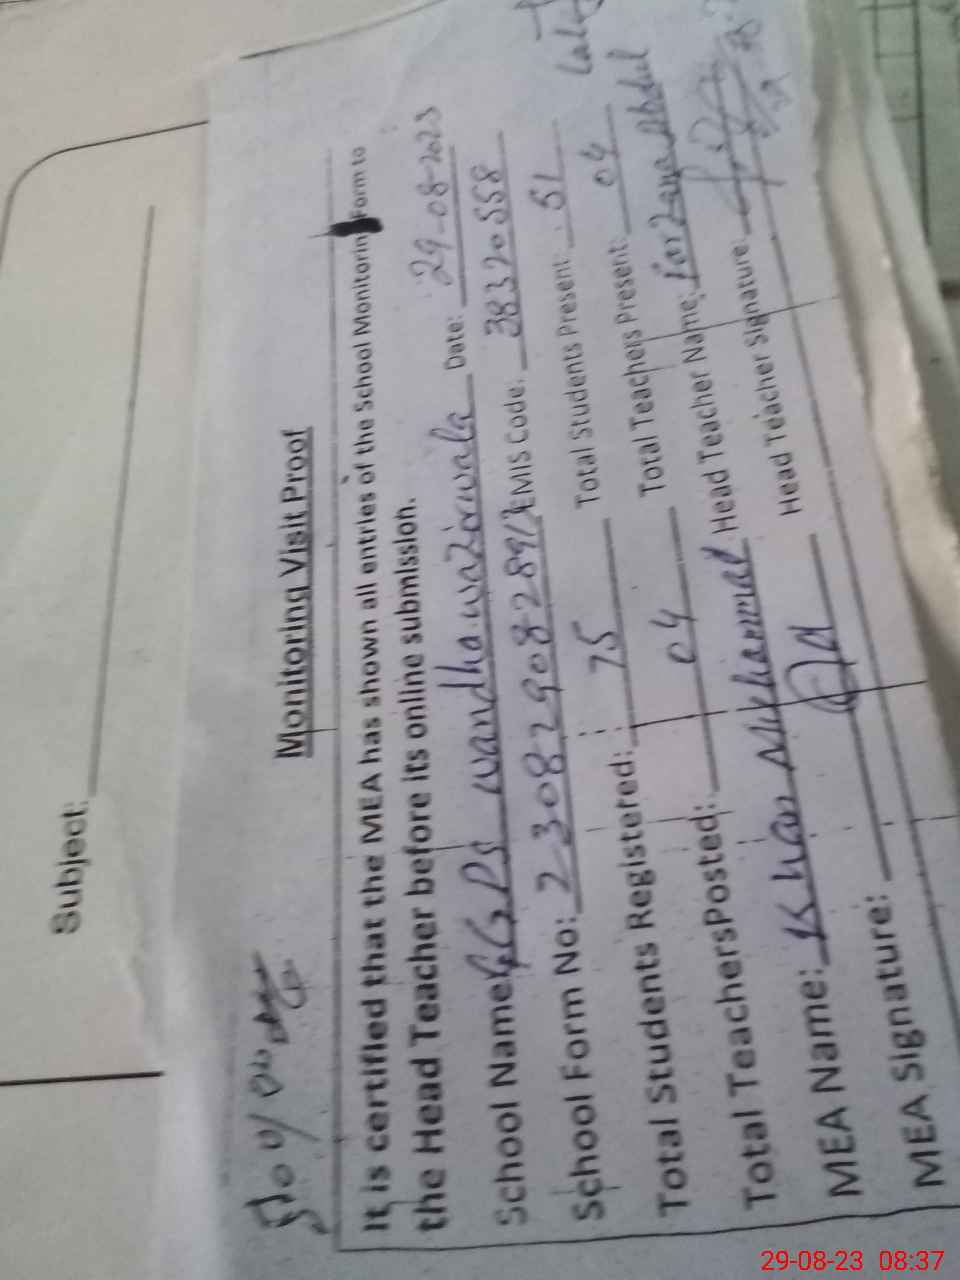 Subject:
Monitoring Visit Proof
It is certified that the MEA has shown all entries of the School Monitorin Form to
the Head Teacher before its online submission.
School Name GGPS wandha wazirwala Date: 29-08-2023
School Form No: EMIS Code: 38320558
Total Students Registered: 75 Total Students Present: 51
Total TeachersPosted: 04 Total Teachers Present: 04
MEA Name: Khan Muhammad Head Teacher Name: Abdul
MEA Signature: Head Teacher Signature:
29-08-23 08:37